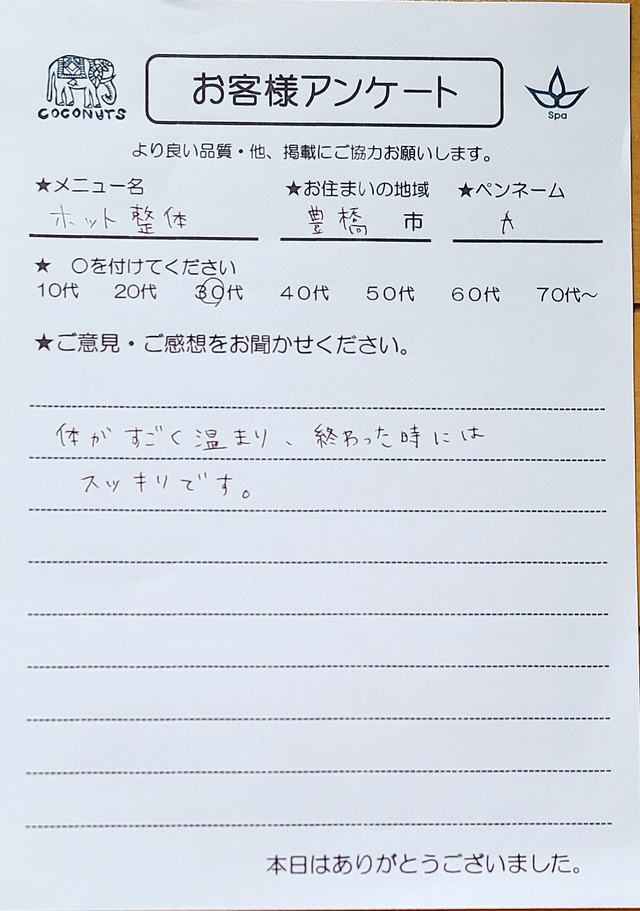 COCONUTS
お客様アンケート
Spa
より良い品質・他、掲載にご協力お願いします。
★メニュー名 ★お住まいの地域 ★ペンネーム
ホット整体 豊橋 市 A
★ ○を付けてください
10代 20代 30代 40代 50代 60代 70代～
★ご意見・ご感想をお聞かせください。
体がすごく温まり、終わった時には
スッキリです。
本日はありがとうございました。